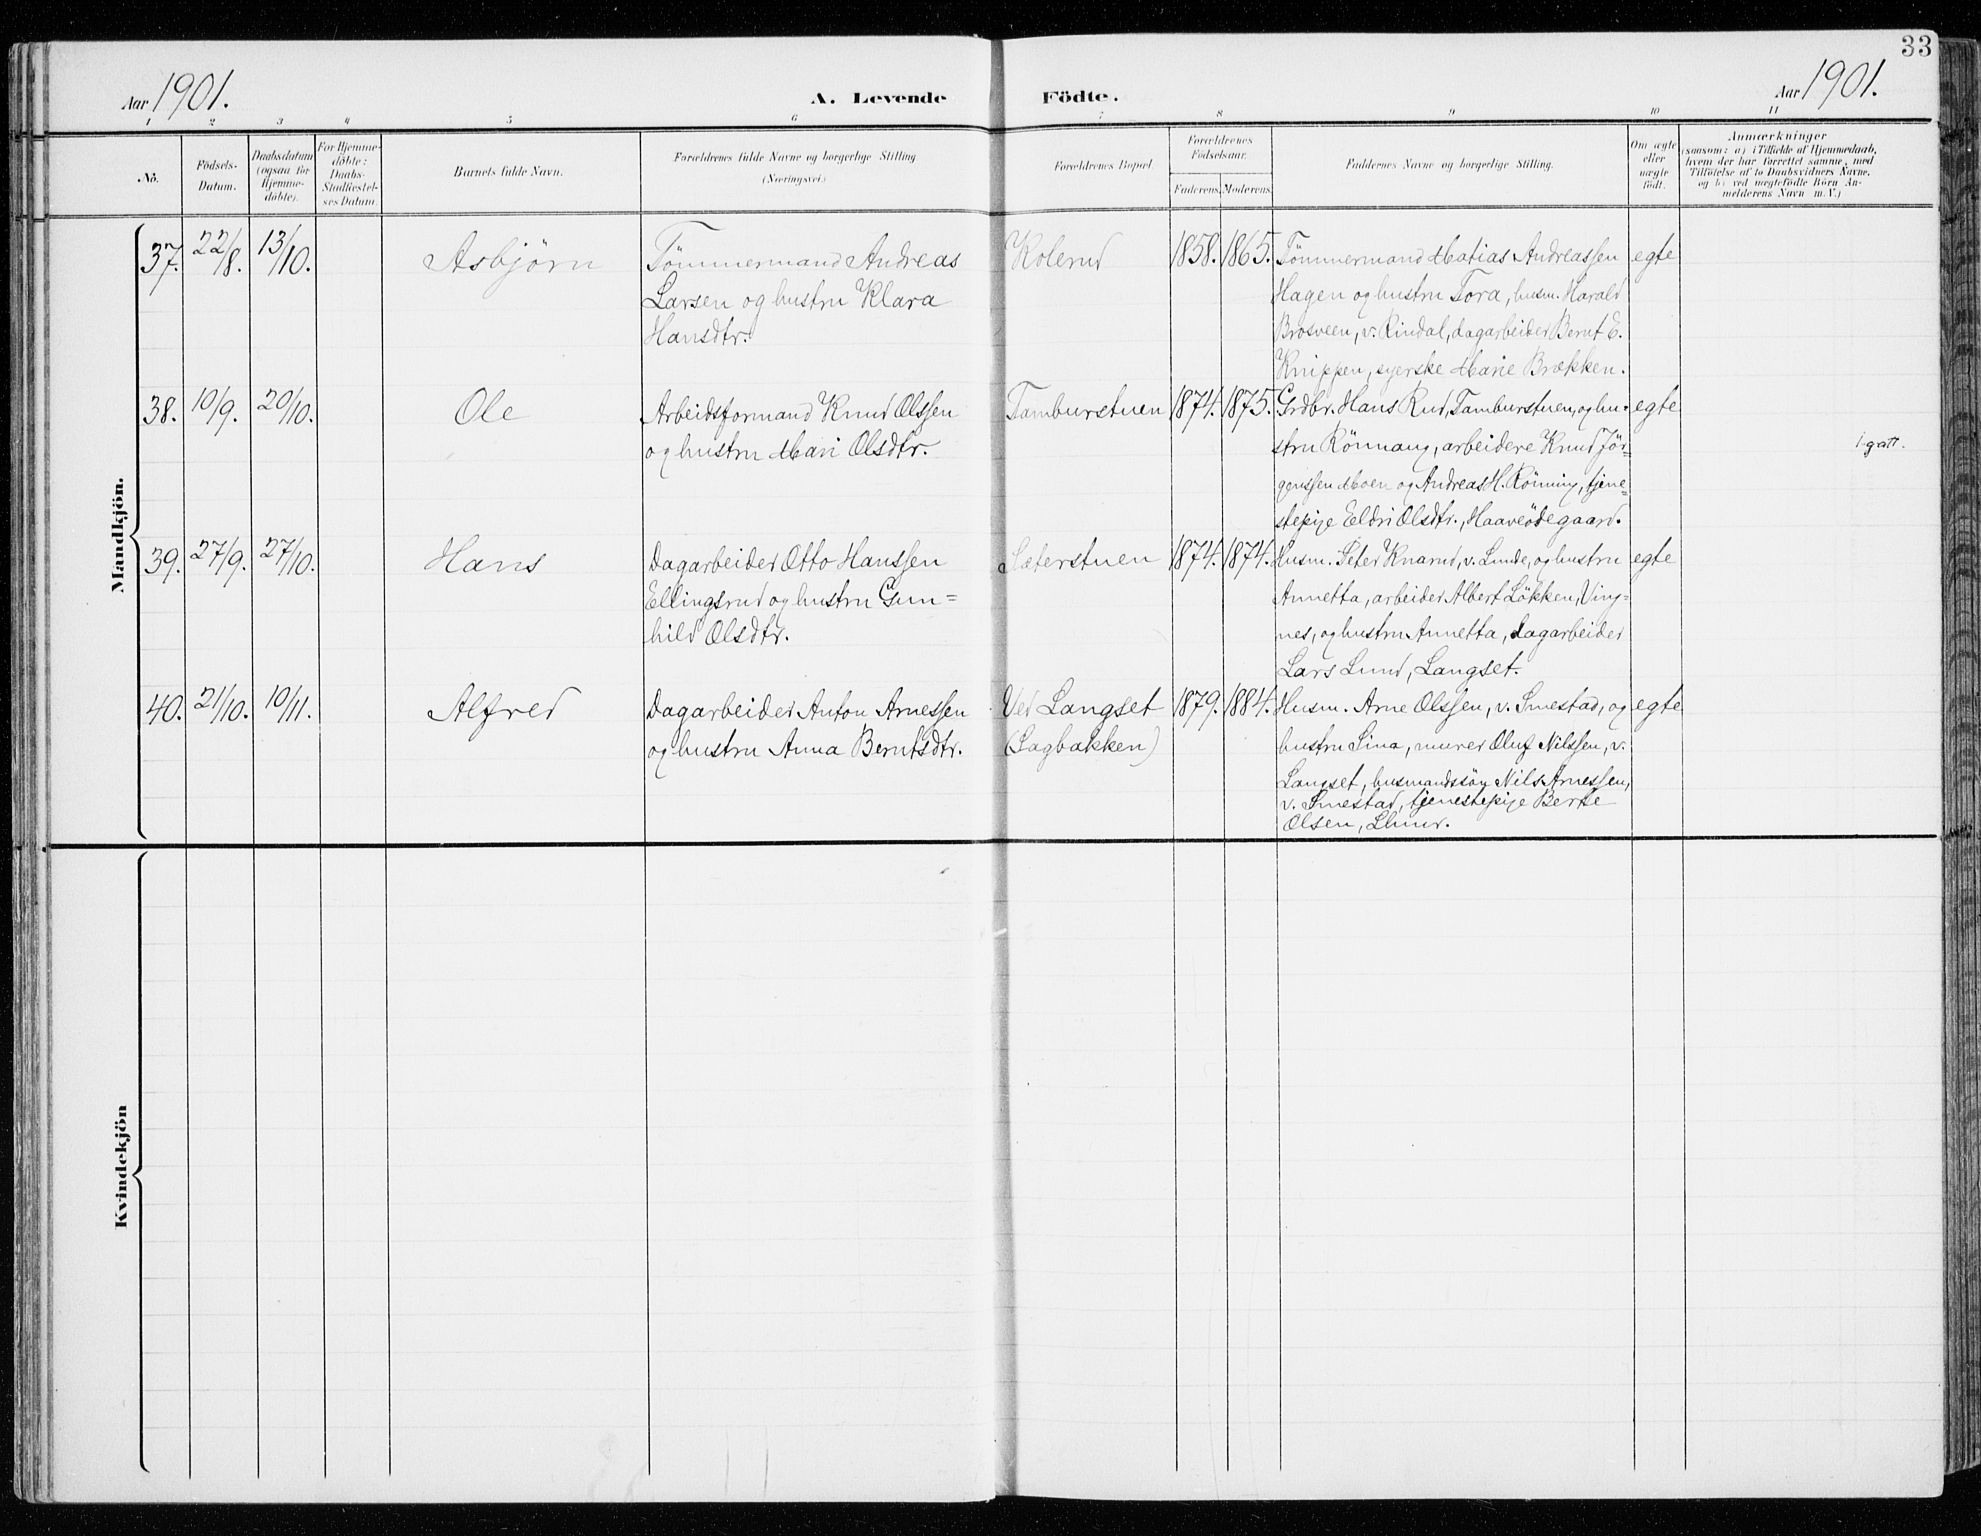 33
Aar 1901. A. Levende Födte. Aar 1901.
1 2 3 4 5 6 7 8 9 10 11
No.
Födsels-Datum.
Daabsdatum (ogsaa for Hjemmedöbte).
For Hjemmedöbte: Daabs-Stadfæstelses Datum.
Barnets fulde Navn.
Forældrenes fulde Navne og borgerlige Stilling
(Næringsvei.)
Forældrenes Bopæl.
Forældrenes Födselsaar.
Faderens. Moderens.
Faddernes Navne og borgerlige Stilling.
Om ægte eller uægte födt.
Anmærkninger
(saasom: a) i Tilfælde af Hjemmedaab,
hvem der har forrettet samme, med
Tilföielse af to Daabsvidners Navne.
og b) ved uægtefödte Börn An-
melderens Navn m. V.)
Mandkjön.
37. 22/8. 13/10. Asbjörn
Tömmermand Andreas
Larsen og hustru Klara
Hansdtr.
Kolerud 1858. 1865.
Tömmermand Matias Andreassen
Hagen og hustru Tora, husm. Harald
Brosveen, v. Rindal, dagarbeider Bernt E.
Knippen, syerske Marie Brækken.
egte
38. 10/9. 20/10. Ole
Arbeidsformand Knud Olssen
og hustru Mari Olsdtr.
Tamburstuen 1874. 1875.
Grdbr. Hans Rud, Tamburstuen, og hu-
stru Rönnaug, arbeidere Knud Jör-
genssen Moen og Andreas H. Rönning, tjene-
stepige Eldri Olsdtr., Haaveödegaard.
egte
39. 27/9. 27/10. Hans
Dagarbeider Otto Hanssen
Ellingsrud og hustru Gun-
hild Olsdtr.
Sæterstuen 1874. 1874.
Husm. Peter Knarud, v. Lunde, og hustru
Annetta, arbeider Albert Lökken, Ving-
nes, og hustru Annetta, dagarbeider
Lars Lund, Langset.
egte
40. 21/10. 10/11. Alfred
Dagarbeider Anton Arnessen
og hustru Anna Berntsdtr.
Ved Langset
(Sagbakken)
1879. 1884.
Husm. Arne Olssen, v. Smestad, og
hustru Sina, murer Oluf Nilssen, v.
Langset, husmandssön Nils Arnessen,
v. Smestad, tjenestepige Berte
Olsen, Lhmr.
egte
Kvindekjön